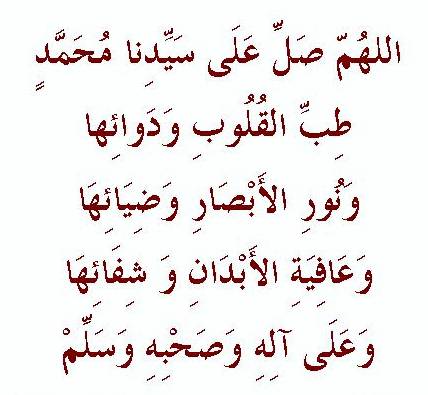 اللهُمّ صَلِّ عَلَى سَيِّدِنا مُحَمَّدٍ
طِبِّ القُلُوبِ وَدَوائِها
وَنُورِ الأَبْصَارِ وَضِيَائِهَا
وَعَافِيَةِ الأَبْدَانِ وَ شِفَائِهَا
وَعَلَى آلِهِ وَصَحْبِهِ وَسَلِّمْ